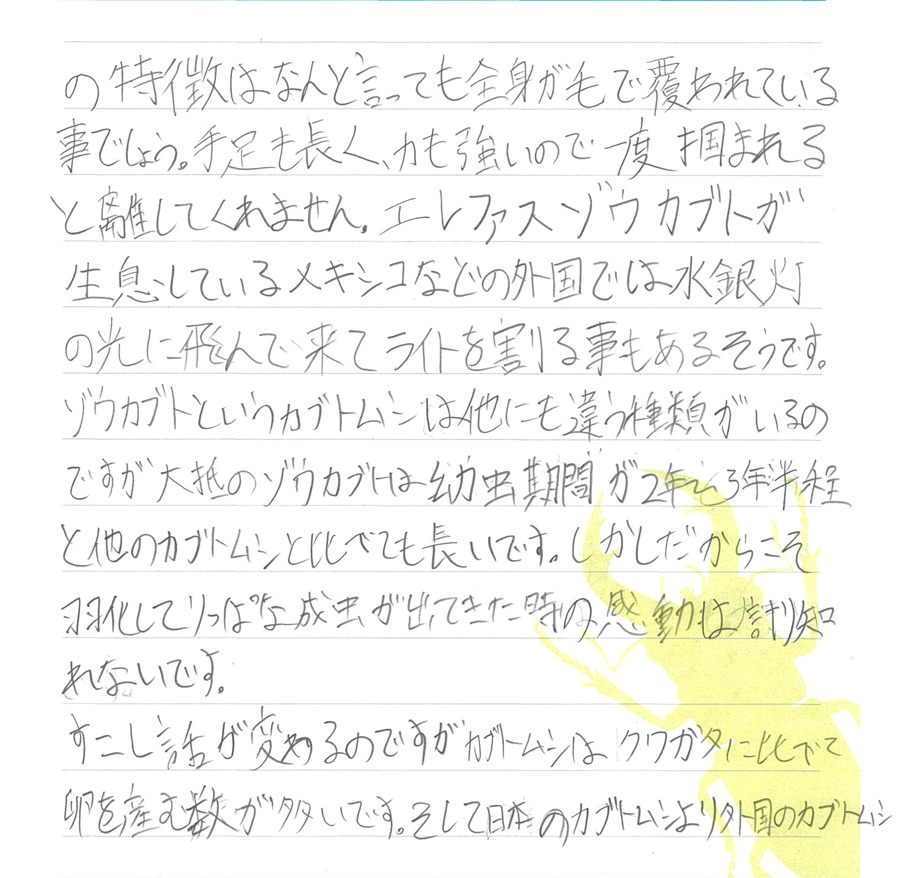 の特徴はなんと言っても全身が毛で覆われている
事でしょう。手足も長く、力も強いので一度掴まれる
と離してくれません。エレファスゾウカブトが
生息しているメキシコなどの外国では水銀灯
の光に飛んで来てライトを割る事もあるそうです。
ゾウカブトというカブトムシは他にも違う種類がいるの
ですが大抵のゾウカブトは幼虫期間が2年〜3年半程
と他のカブトムシと比べても長いです。しかしだからこそ
羽化してりっぱな成虫が出てきた時の感動は計り知
れないです。
すこし話が変わるのですがカブトムシはクワガタに比べて
卵を産む数が多いです。そして日本のカブトムシより外国のカブトムシ